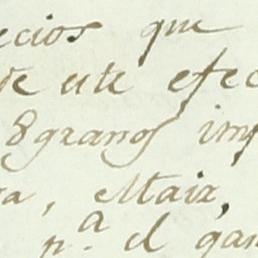 ecios que
te este efec
8 granos imp
ra, Maiz,
p.ª el gan